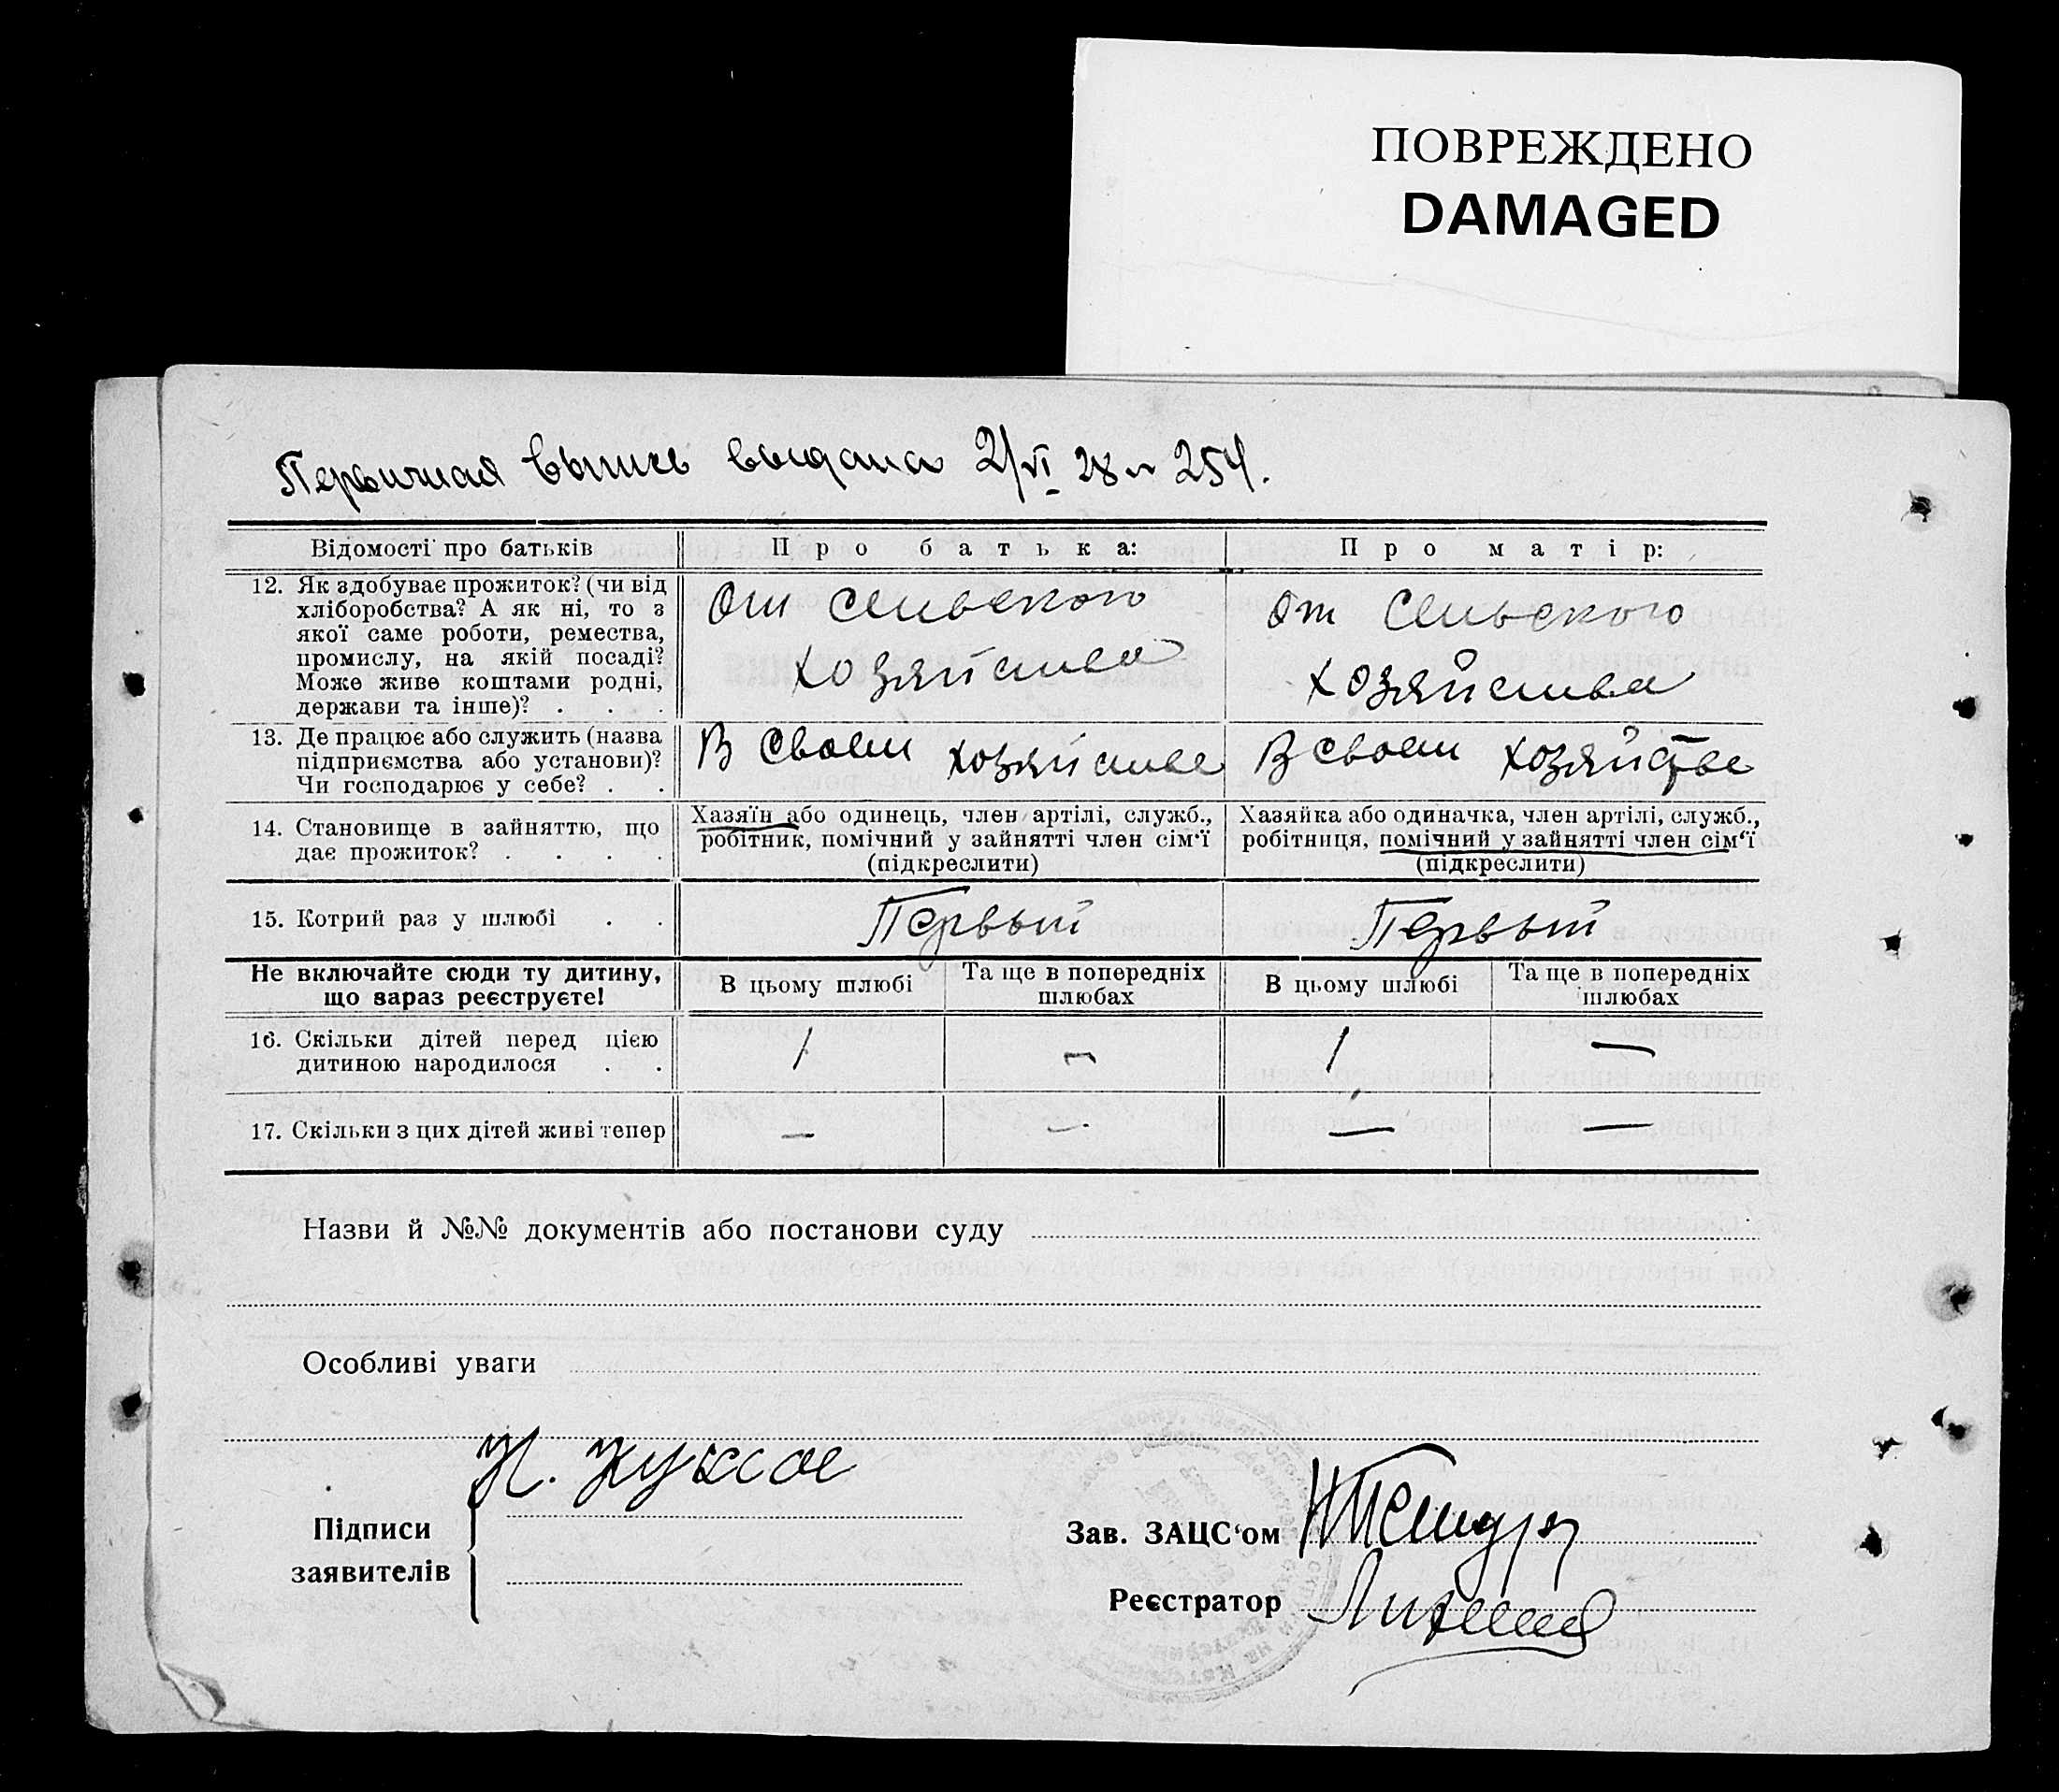 ПОВРЕЖДЕНО
DAMAGED
Первичная выпись выдана 2/VI 28 г 254.
Відомості про батьків
Про батька:
Про матір:
12. Як здобуває прожиток? (чи від
хліборобства? А як ні, то з
якої саме роботи, ремества,
промислу, на якій посаді?
Може живе коштами родні,
держави та інше)? . . .
От Сельского
хозяйства
От Сельского
хозяйства
13. Де працює або служить (назва
підприємства або установи)?
Чи господарює у себе? . .
В своем хозяйстве
В своем хозяйстве
14. Становище в зайняттю, що
дає прожиток? . . . .
Хазяїн або одинець, член артілі, служб.,
робітник, помічний у зайнятті член сім'ї
(підкреслити)
Хазяйка або одиначка, член артілі, служб.,
робітниця, помічний у зайнятті член сім'ї
(підкреслити)
15. Котрий раз у шлюбі . .
Первый
Первый
Не включайте сюди ту дитину,
що зараз реєструєте!
В цьому шлюбі
Та ще в попередніх
шлюбах
В цьому шлюбі
Та ще в попередніх
шлюбах
16. Скільки дітей перед цією
дитиною народилося . .
1
—
1
—
17. Скільки з цих дітей живі тепер
—
—
—
—
Назви й №№ документів або постанови суду
Особливі уваги
Підписи
заявителів
Зав. ЗАЦС'ом
Реєстратор